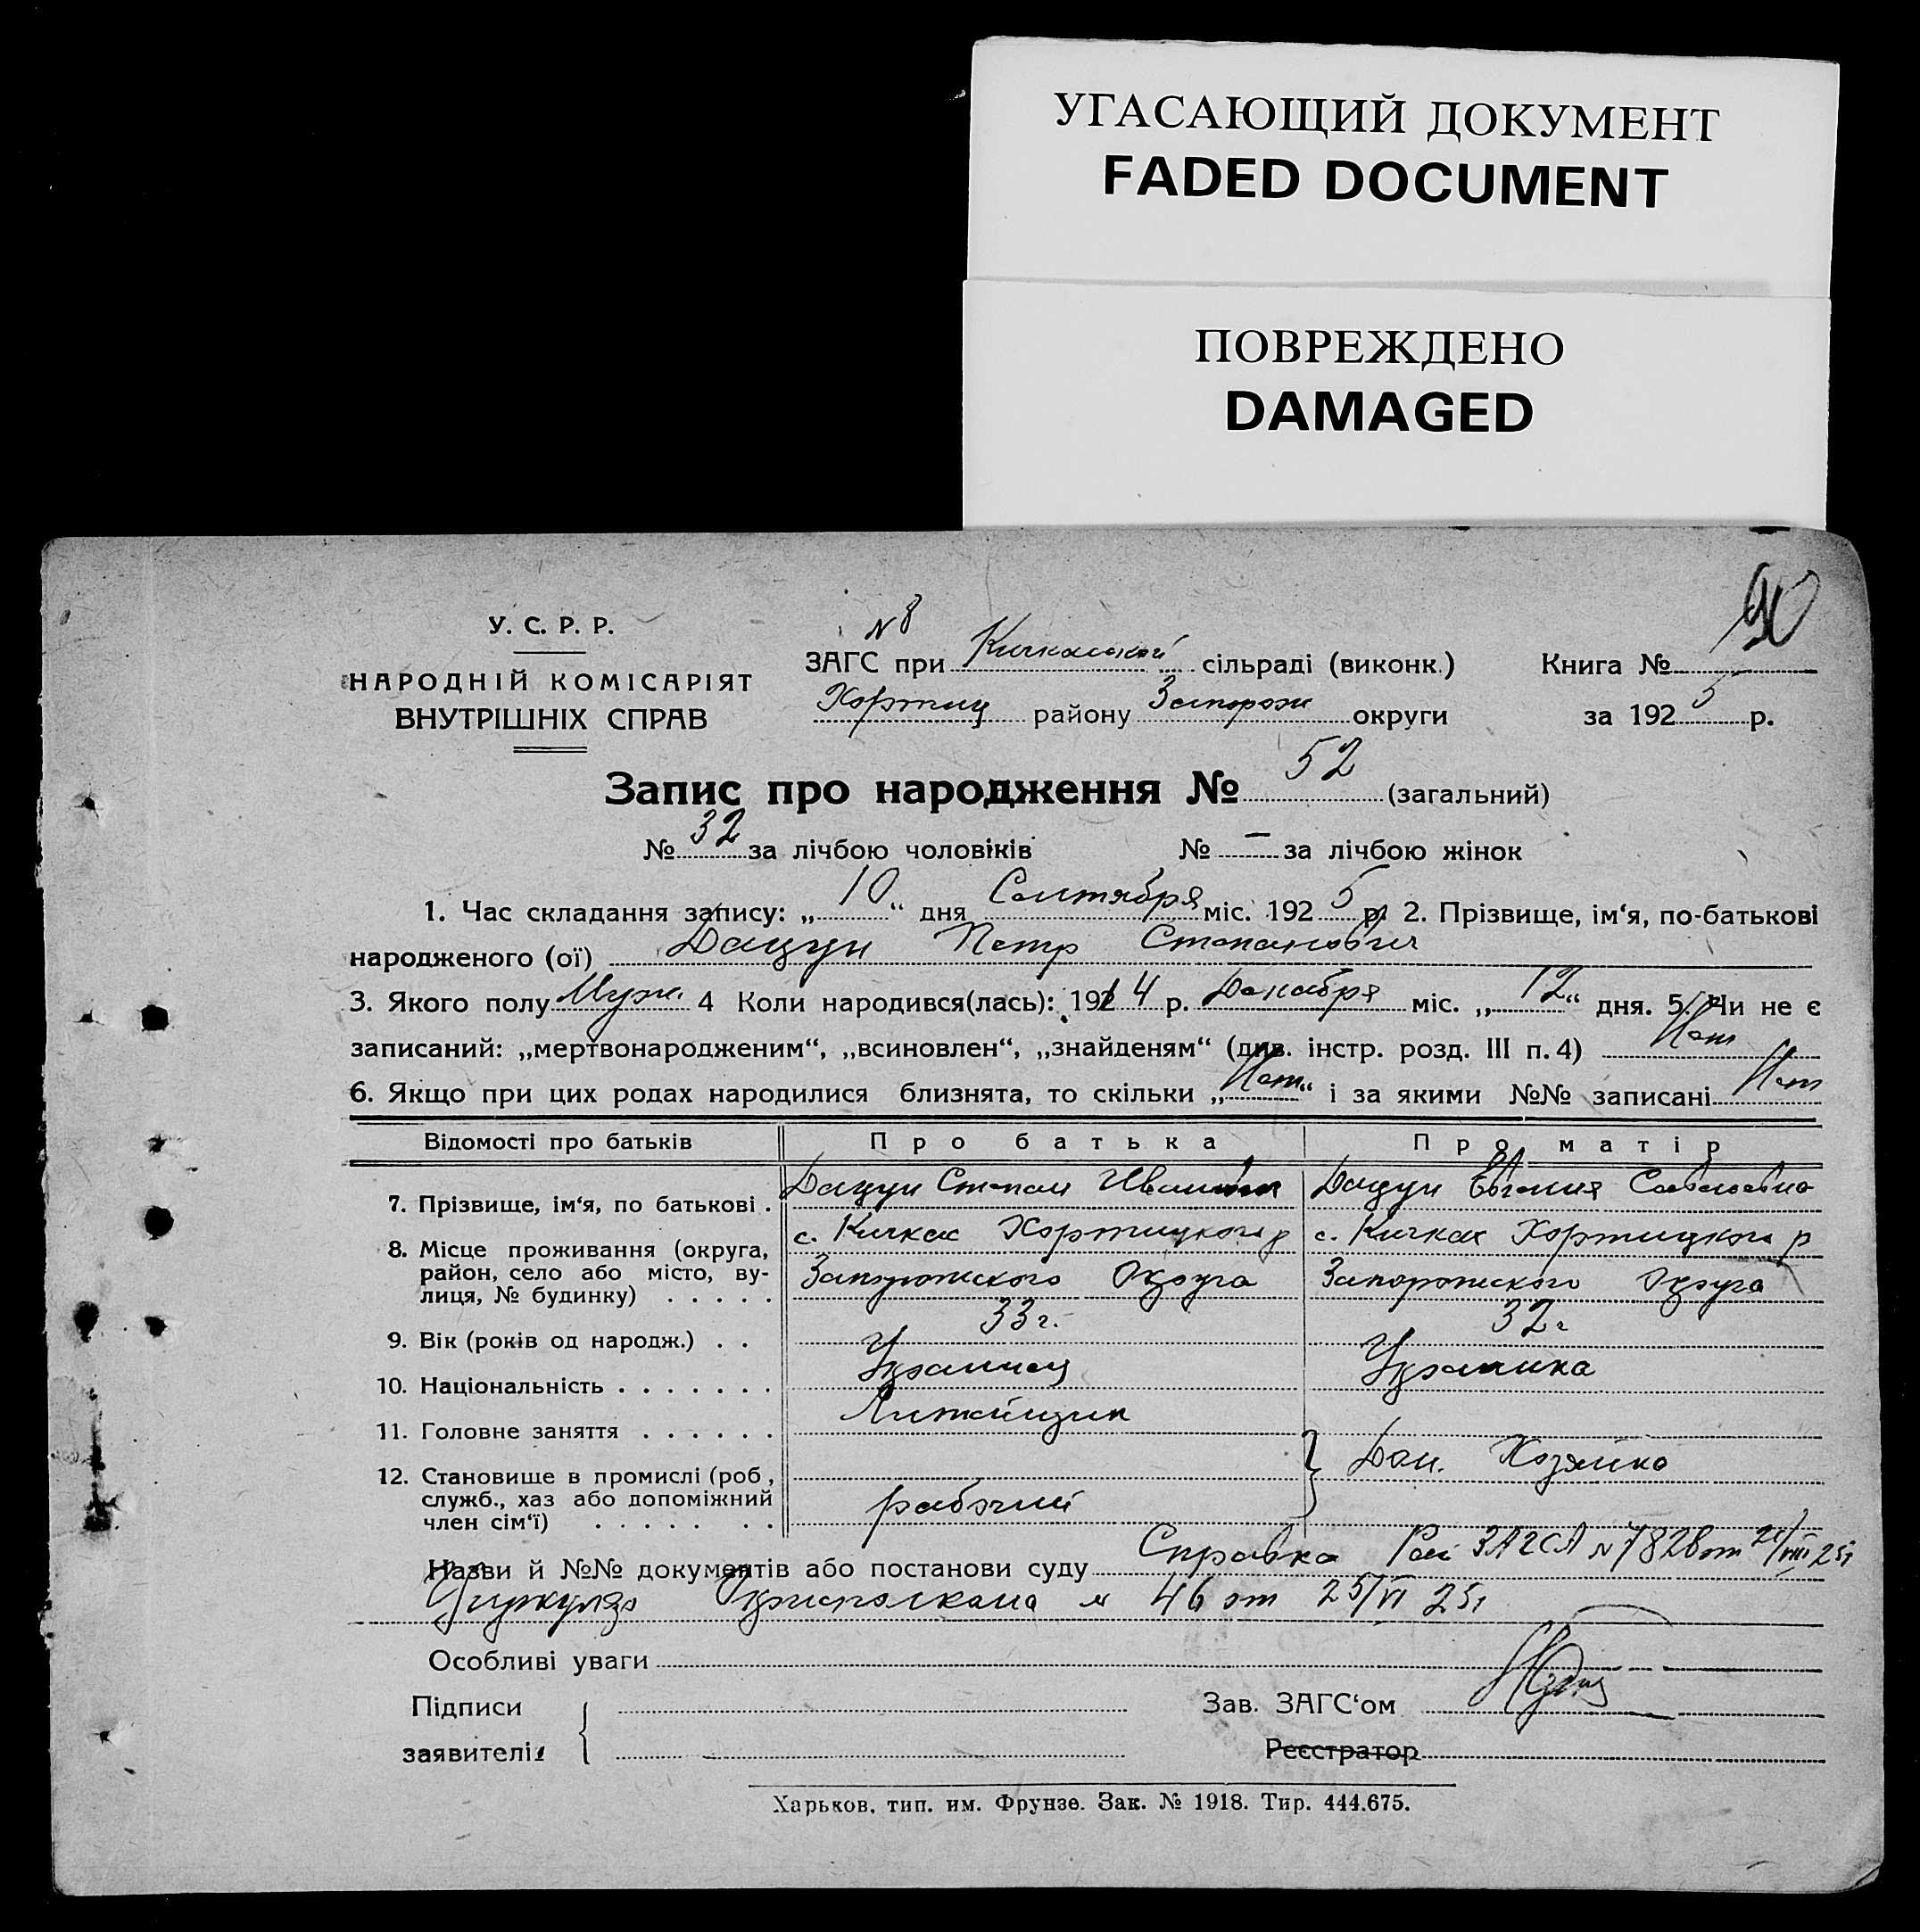 УГАСАЮЩИЙ ДОКУМЕНТ
FADED DOCUMENT
ПОВРЕЖДЕНО
DAMAGED
У. С. Р. Р.
НАРОДНІЙ КОМІСАРІЯТ
ВНУТРІШНІХ СПРАВ
N 8
ЗАГС при Кичкасской сільраді (виконк.)
Хортиц району Запорож округи
Книга №
за 1925 р.
Запис про народження № 52 (загальний)
№ 32 за лічбою чоловіків № — за лічбою жінок
1. Час складання запису: „10“ дня Сентября міс. 1925 р. 2. Прізвище, ім‘я, по-батькові
народженого (ої) Дацун Петр Степанович
3. Якого полу Муж. 4 Коли народився(лась): 1914 р. Декабря міс. „12“ дня. 5. Чи не є
записаний: „мертвонародженим“, „всиновлен“, „знайденям“ (див. інстр. розд. III п. 4) Нет
6. Якщо при цих родах народилися близнята, то скільки „Нет“ і за якими №№ записані Нет
Відомості про батьків Про батька Про матір
7. Прізвище, ім‘я, по батькові . Дацун Степан Иванович Дацун Евгения Савельевна
8. Місце проживання (округа, с. Кичкас Хортицкого р с. Кичкас Хортицкого р
район, село або місто, ву- Запорожского Округа Запорожского Округа
лиця, № будинку) . . . . .
9. Вік (років од народж.) . . 33 г. 32 г
10. Національність . . . . . . . Украинец Украинка
11. Головне заняття . . . . . . Литейщик
12. Становище в промислі (роб., Дом. Хозяйка
служб., хаз або допоміжний рабочий
член сім‘ї) . . . . . . .
Назви й №№ документів або постанови суду Справка Рай ЗАГСА N 7828 от 21/VIII 25г
Циркуляр Окрисполкома N 46 от 25/VI 25г
Особливі уваги
Підписи
заявителі:
Зав. ЗАГС‘ом
Реєстратор
Харьков. тип. им. Фрунзе. Зак. № 1918. Тир. 444.675.